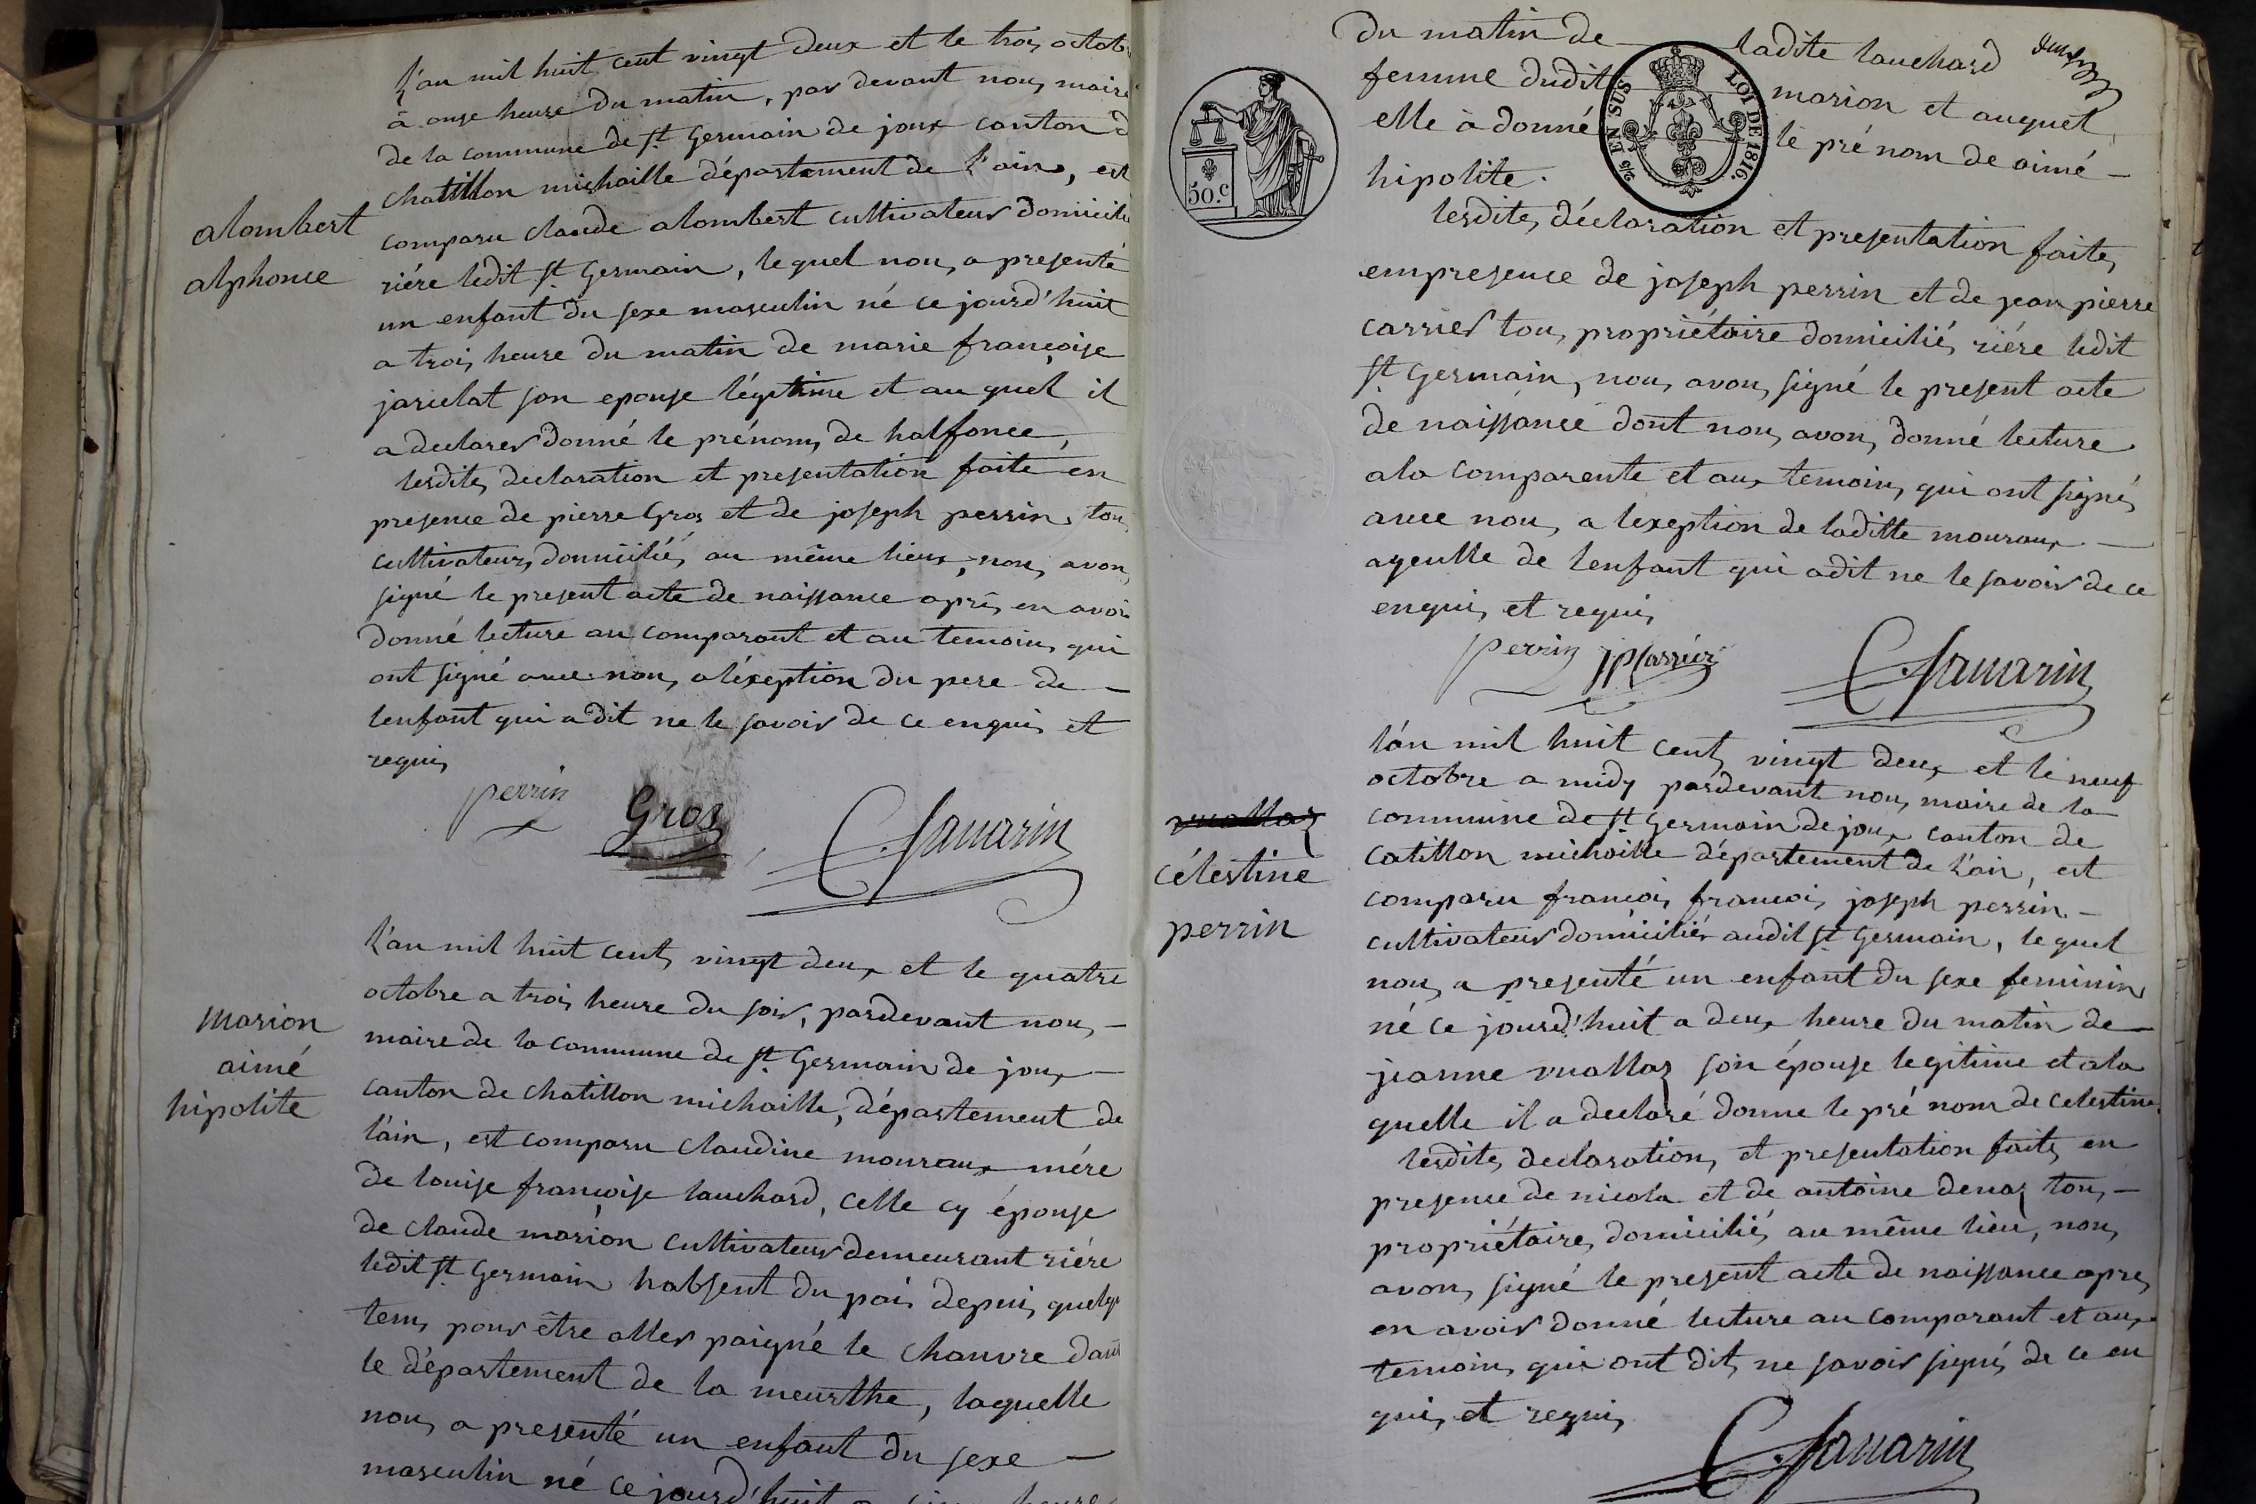 L'an mil huit cent vingt deux et le trois octob
à onze heure du matin, par devant nous maire
de la commune de St Germain de joux canton d
chatillon michaille département de l'ain, est
alombert
alphonce
comparu claude alombert cultivateur domicilié
riére ledit St Germain, lequel nous a presenté
un enfant du sexe masculin né ce jourd'huit
a trois heure du matin de marie françoise
jarielat son epouse légitime et au quel il
a declarer donné le prénoms de halfonce,
lesdites declaration et presentation faite en
presence de pierre Gros et de joseph perrin, tous
cultivateurs domicilié, au même lieux, nous avons
signé le present acte de naissance après en avoir
donné lecture au comparant et au temoins qui
ont signé avec nous, a léxeption du pere de
lenfant qui a dit ne le savoir de ce enquis et
requis
perrin Gros C. Savarin
L'an mil huit cent vingt deux et le quatre
octobre a trois heure du soir, pardevant nous
marion
aimé
hipolite
maire de la commune de St Germain de joux
canton de chatillon michaille, département de
l'ain, est comparu claudine mouraux mére
de louise françoise lauchard, celle cy épouse
de claude marion cultivateur demeurant riére
ledit St Germain habsent du païs depuis quelqe
tems pour être aller paigné le chanvre dans
le département de la meurthe, laquelle
nous a presenté un enfant du sexe
masculin né ce jourd'huit a heure
du matin de ladite lauchard
femme dudit marion et auquel
elle à donné le prénom de aimé
hipolite.
50.c
2/5 EN SUS
LOI DE 1816.
lesdites déclaration et presentation faites
empresence de joseph perrin et de jean pierre
carrier tous propriétaire domicilié, riére ledit
St Germain, nous avons signé le present acte
de naissance dont nous avons donné lecture
ala comparente et aux temoins qui ont signé,
avec nous, a lexeption de laditte mouraux
ayeulle de lenfant qui adit ne le savoir de ce
enquis et requis
perrin JPCarrier C. Savarin
l'an mil huit cent vingt deux et le neuf
octobre a midy pardevant nous maire de la
commune de St Germain de joux canton de
catillon michaille département de l'ain, est
vuallaz
célestine
perrin
comparu françois françois joseph perrin
cultivateur domicilié audit St Germain, le quel
nous a presenté un enfant du sexe feminin
né ce jourd'huit a deux heure du matin de
jeanne vuallaz son épouse legitime et ala
quelle il a declaré donne le pré nom de celestine
lesdites declarations et presentation faites en
presence de nicola et de antoine denaz tous
propriétaires domicilié, au même lieu, nous
avons signé le present acte de naissance apres
en avoir donné lecture au comparant et aux
temoins qui ont dit ne savoir signé, de ce en
quis et requis
C. Savarin